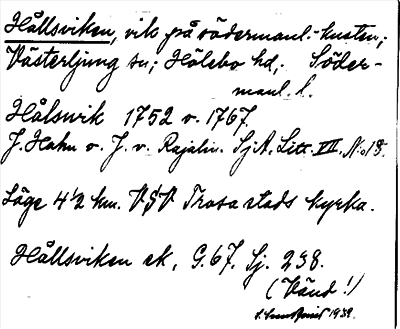 Hållsviken, vik på södermanl.-kusten;
Västerljung sn; Hölebo hd, Söder-
manl. l.
Hålsvik 1752 o. 1767.
J. Hahn o. J. v. Rajalin. SjA. Litt. VII, No 18.
Läge 4 1/2 km. VSV Trosa stads kyrka.
Hållsviken ek. G. 67. Sj. 238.
(Vänd!)
1938